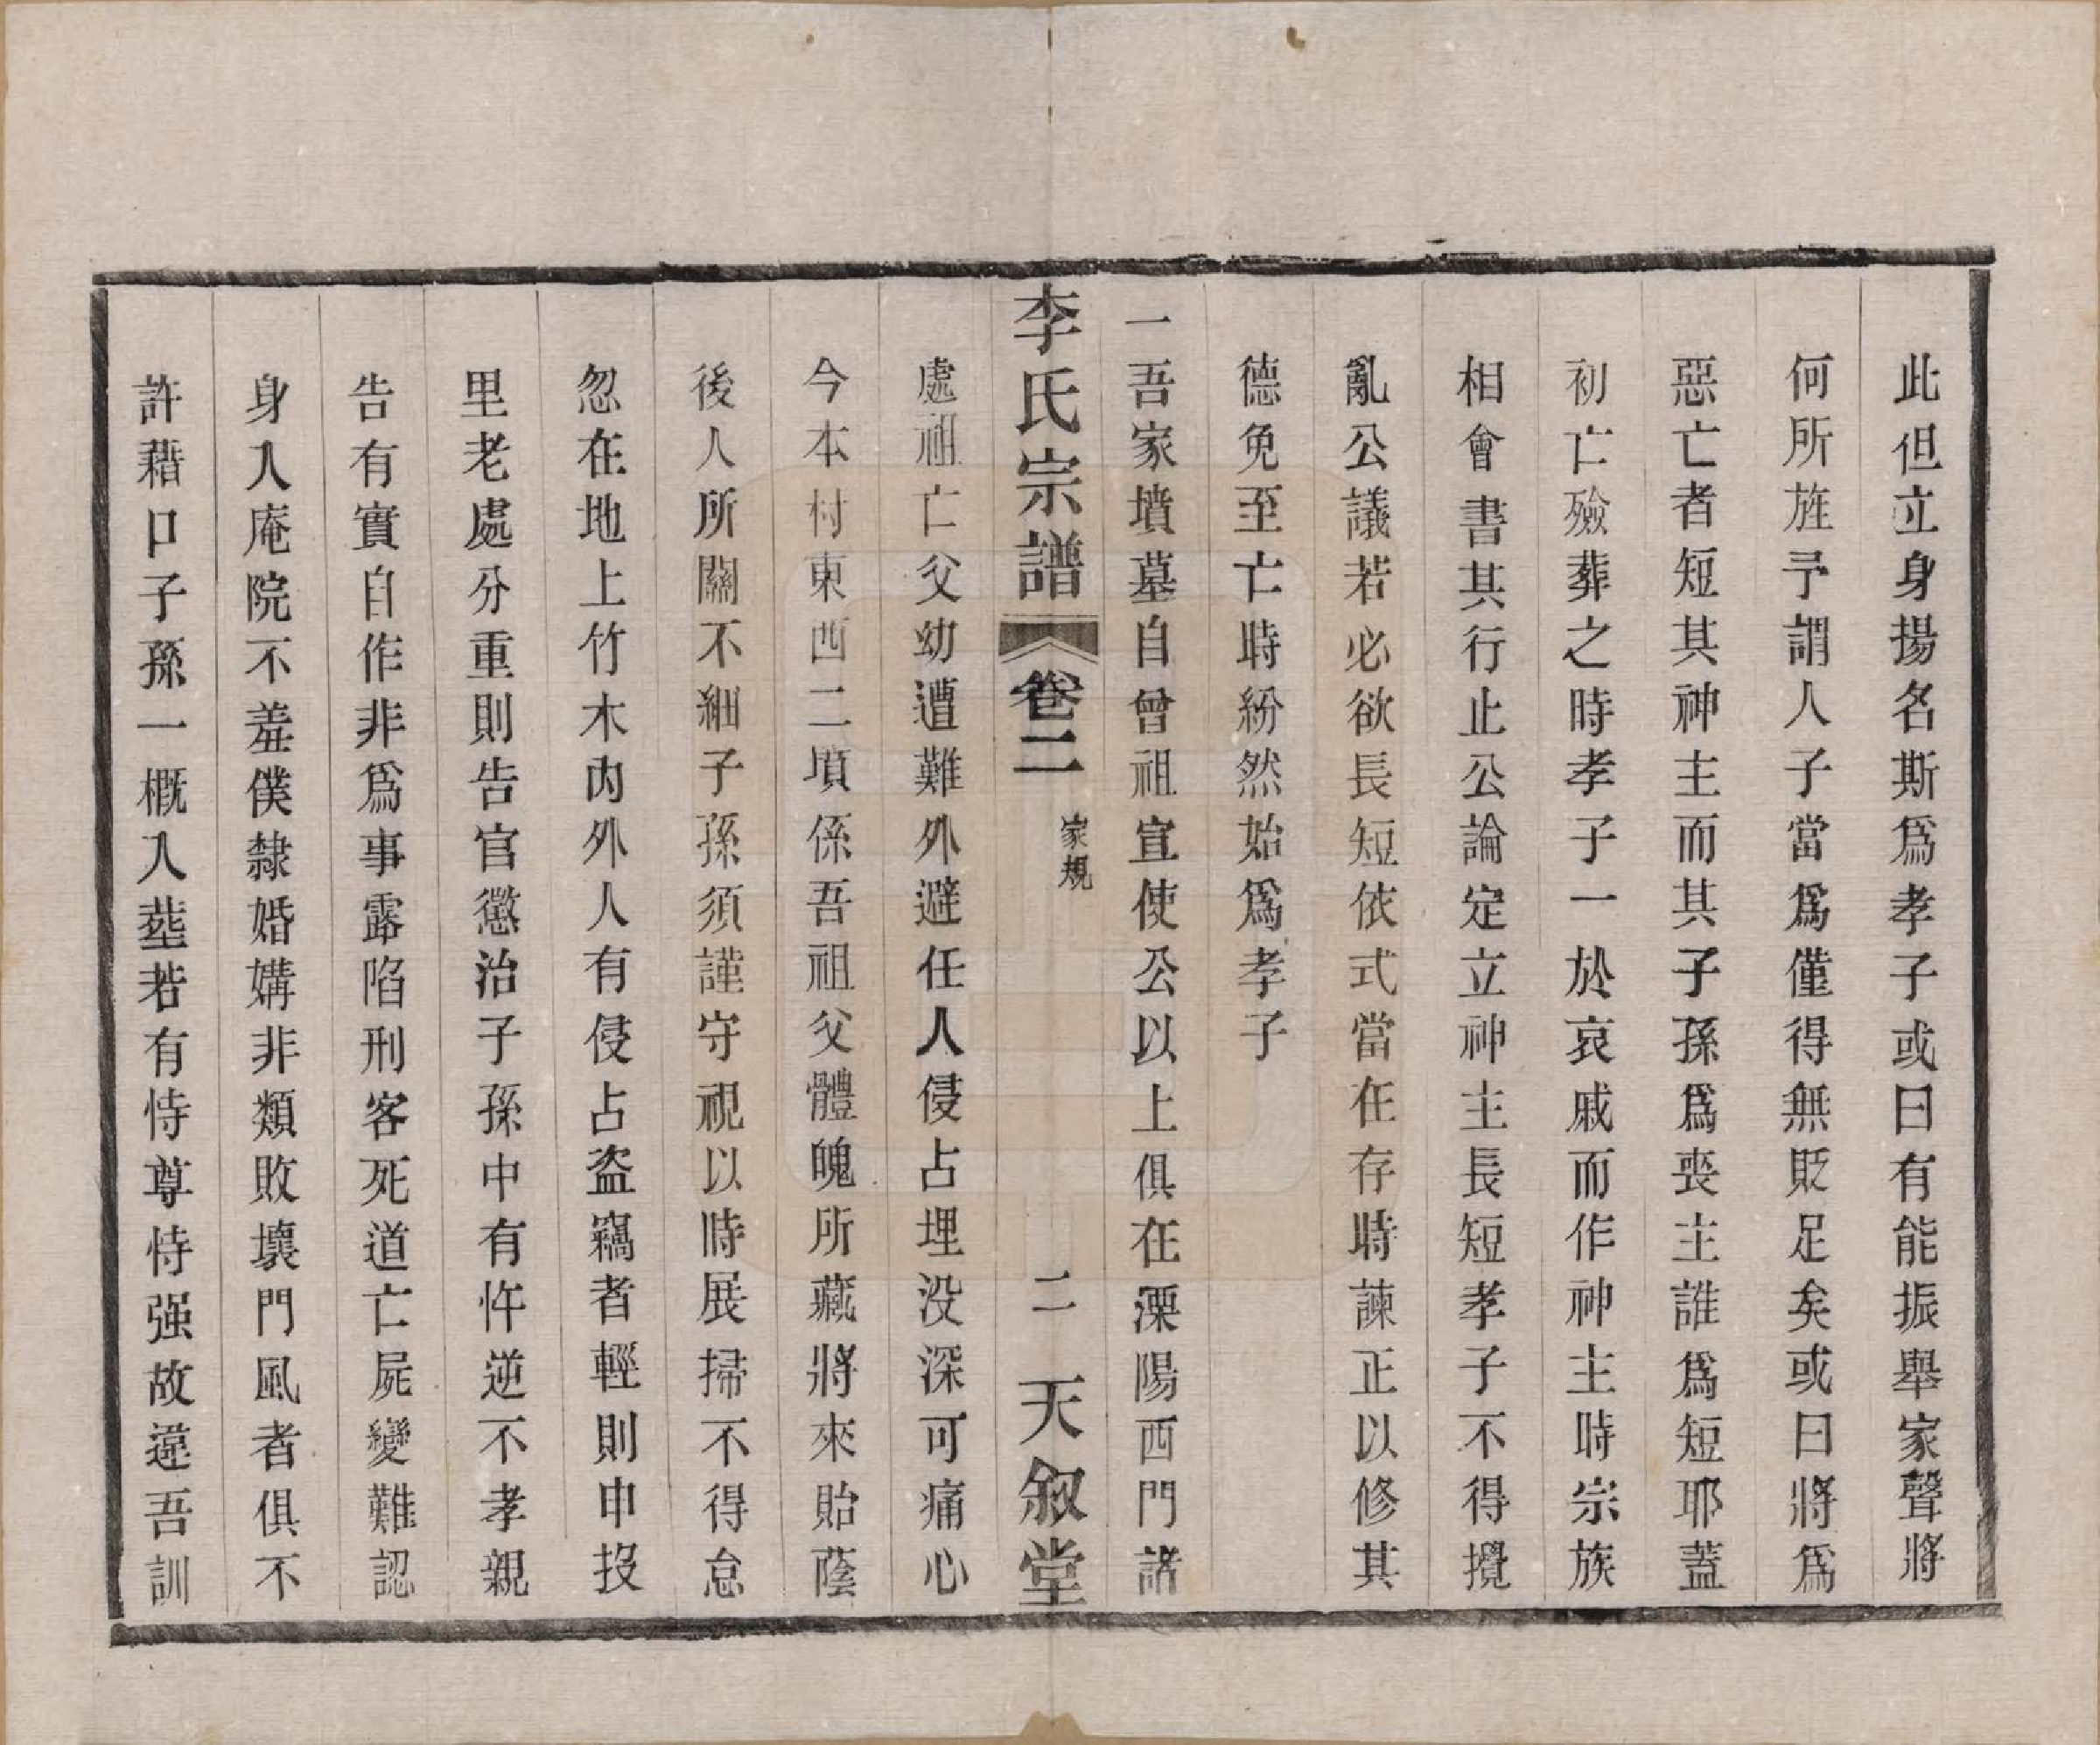 此但立身揚名斯爲孝子或曰有能振舉家聲將
何所旌予謂人子當爲僅得無貶足矣或曰將爲
惡亡者短其神主而其子孫爲喪主誰爲短耶蓋
初亡殮葬之時孝子一於哀戚而作神主時宗族
相會書其行止公論定立神主長短孝子不得攪
亂公議若必欲長短依式當在存時諫正以修其
德免至亡時紛然始爲孝子
一吾家墳墓自曾祖宣使公以上俱在溧陽西門諸
李氏宗譜 卷二 家規 二 天叙堂
處祖亡父幼遭難外避任人侵占埋没深可痛心
今本村東西二墳係吾祖父體魄所藏將來貽蔭
後人所關不細子孫須謹守視以時展掃不得怠
忽在地上竹木內外人有侵占盜竊者輕則申投
里老處分重則告官懲治子孫中有忤逆不孝親
告有實自作非爲事露陷刑客死道亡屍變難認
身入庵院不羞僕隸婚媾非類敗壞門風者俱不
許藉口子孫一概入塟若有恃尊恃强故違吾訓